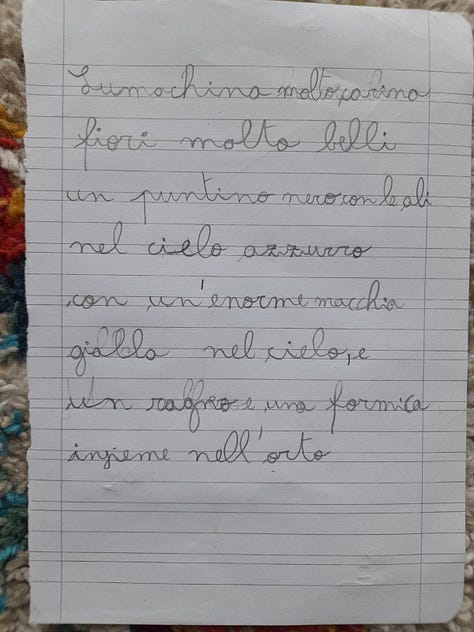 Lumachina molto carina
fiori molto belli
un puntino nero con le ali
nel cielo azzurro
con un'enorme macchia
gialla nel cielo, e
un ragno e una formica
insieme nell'orto